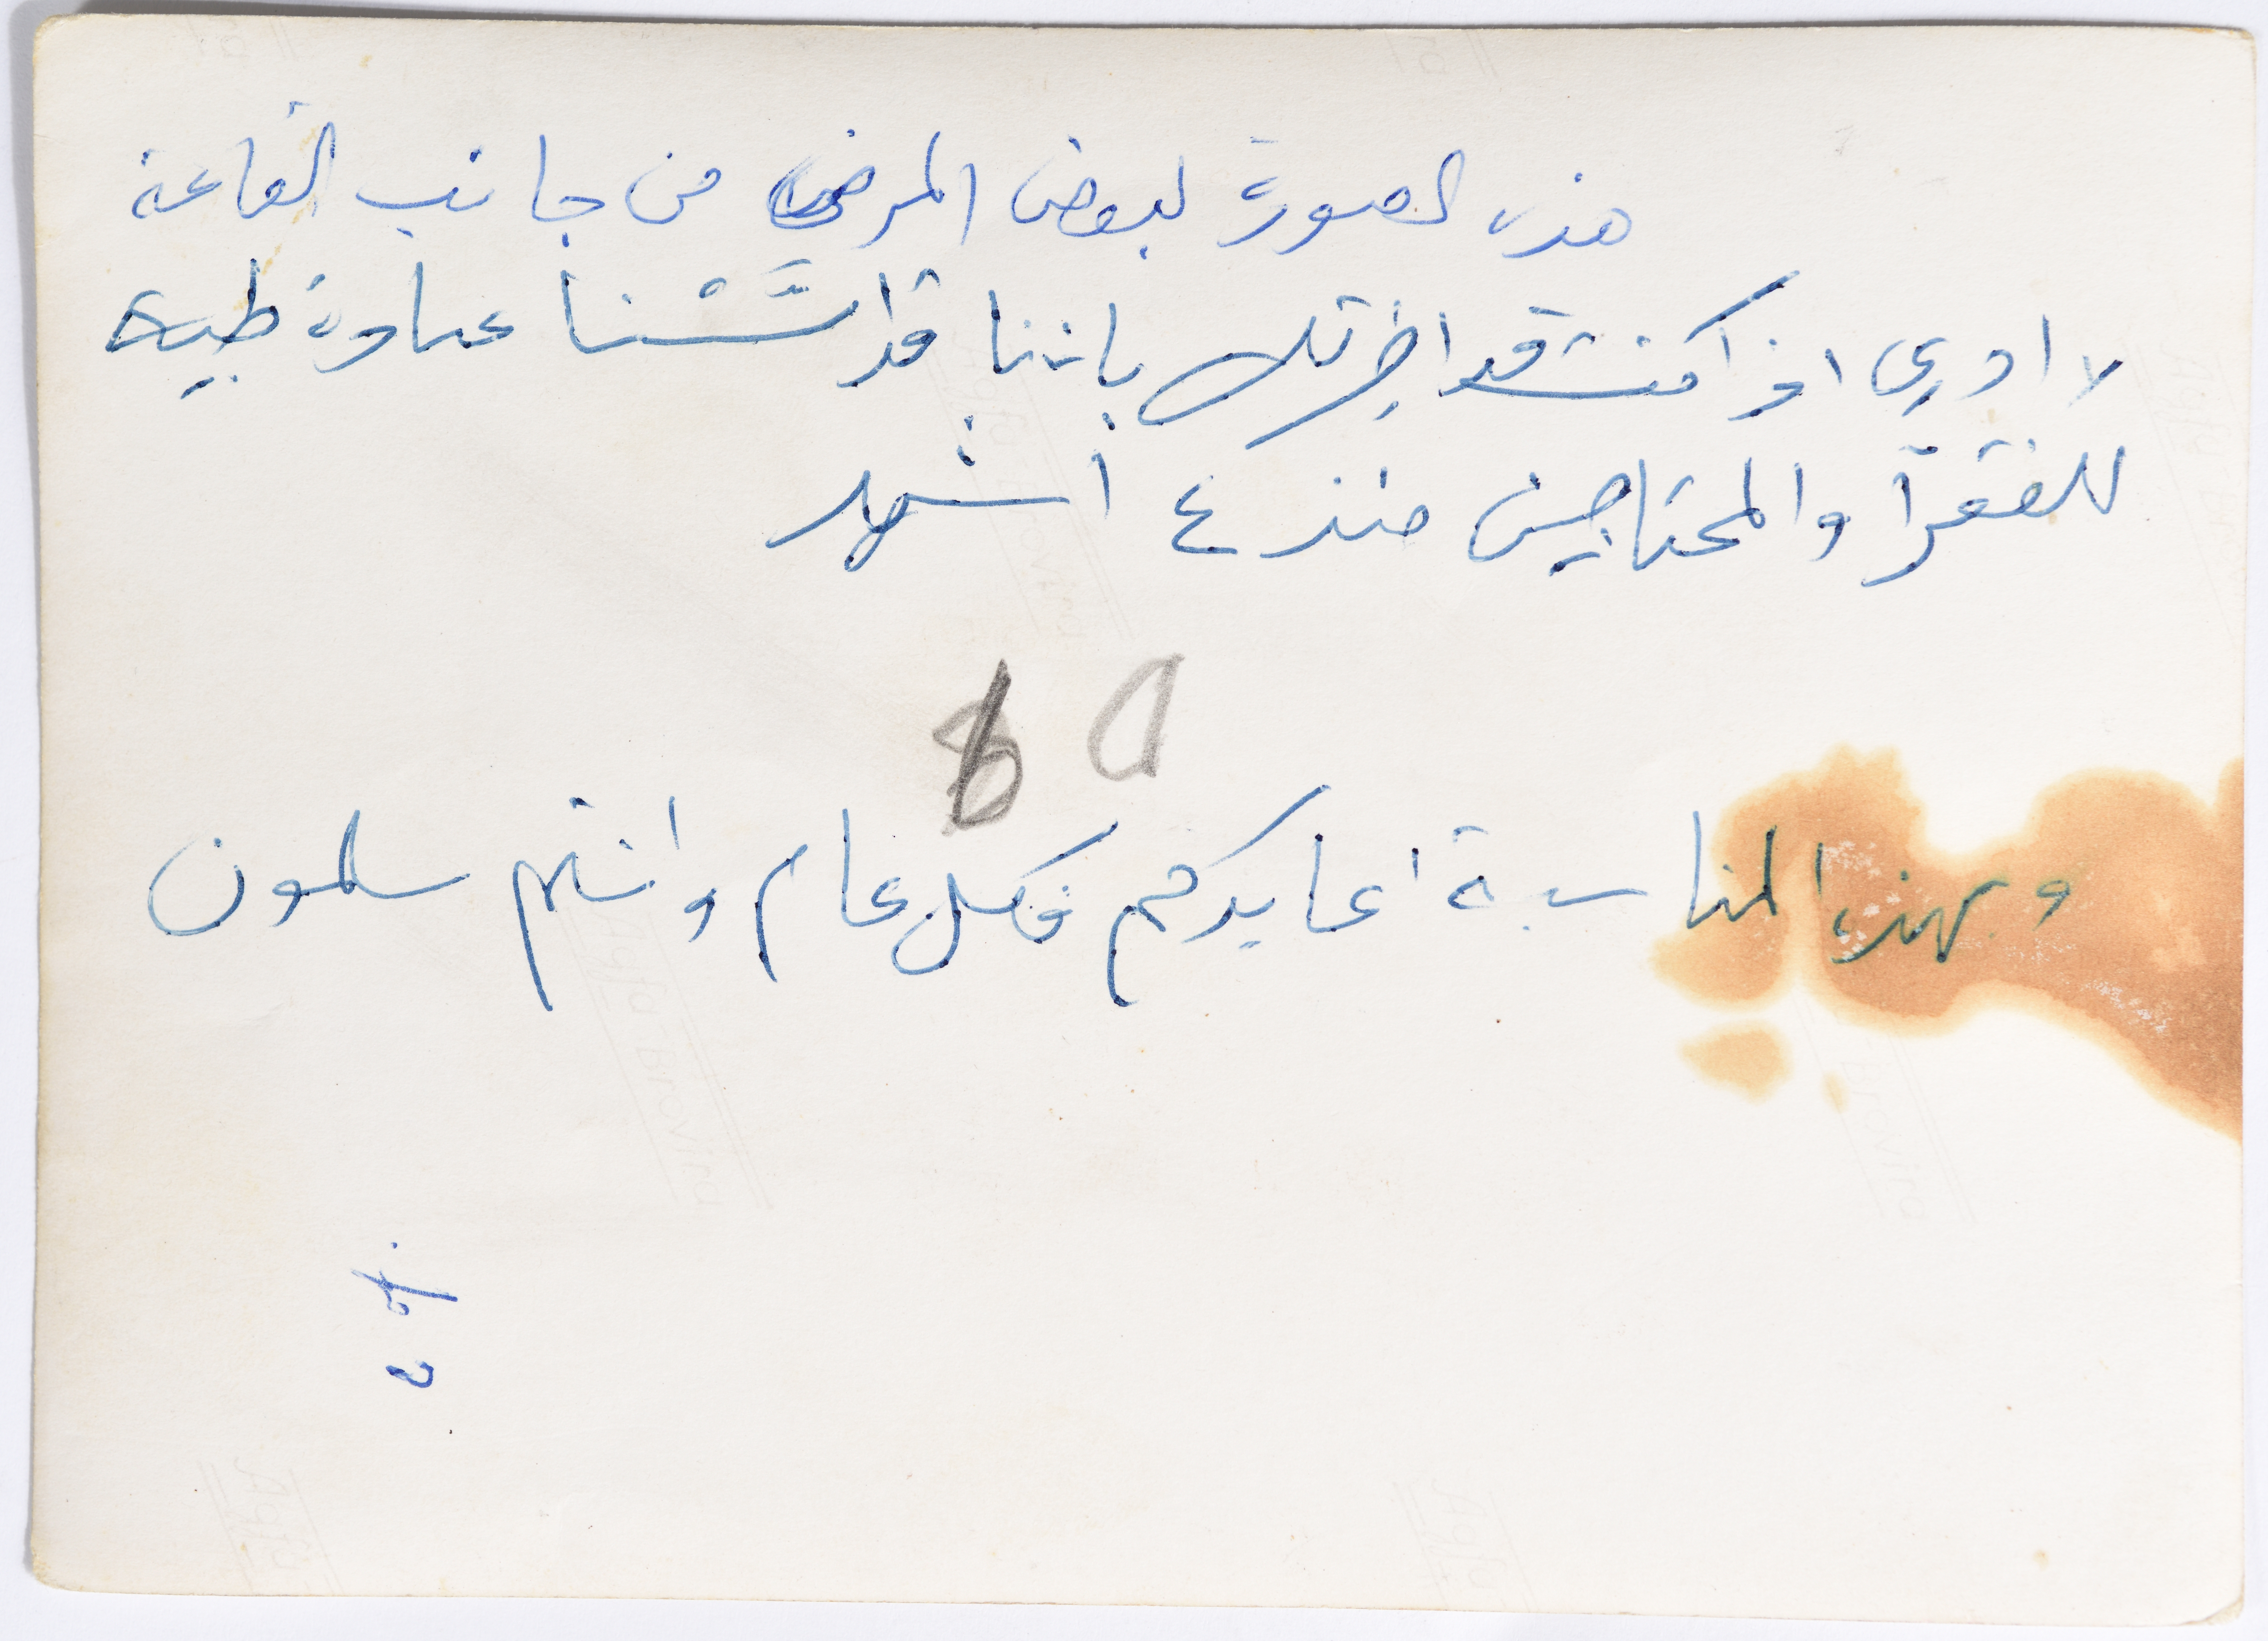 هذه الصورة لبعض المرضى من جانب القاعة
لا ادري اذا كنت قد اخبرتك باننا قد اسَّسْنا عيادة طبية
للفقرآ والمحتاجين منذ ٤ اشهر
وبهذه المناسبة اعايدكم فكل عام وانتم سالمون